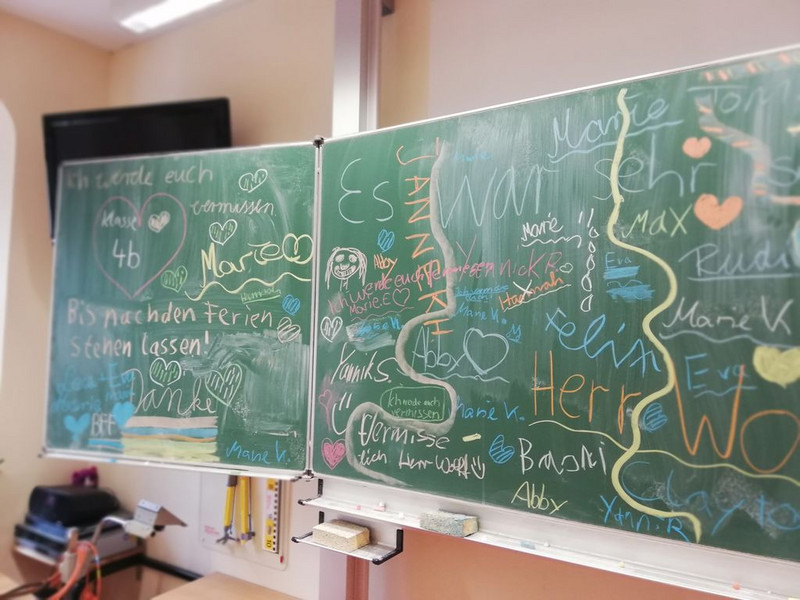 Ich werde euch
vermissen
klasse
4b
Marie
Hannah
Bis nach den Ferien
stehen lassen!
Danke
BFF
Marie V.
Es war sehr
JANNEKH
Marie
Tom
Marie
Max
Abby
Ich werde euch vermissen
Nick R.
Marie.E
Hannah
Eva
Rudi
Marie K
Marie K.
Felix
Yannik S.
Abby
Eva
Ich werde euch
vermissen
Marie K.
Herr Wo
Vermisse
dich Herr Wolf
Baski
Abby
Yannik R
Clayto